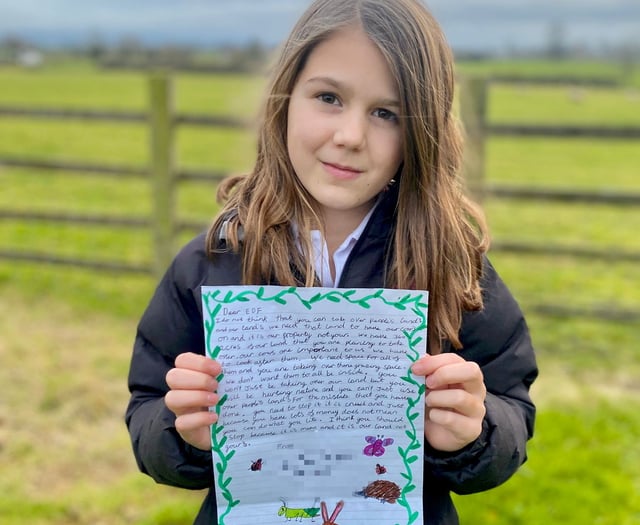 Dear EDF
I do not think that you can take over people's lands
and our lands we need that land to have our cows
on and it is our property not yours. We have
acres of our land that you are planning to take
over, our cows are important to us we have
to look after them. We had space for all of
them and you are taking our there grazing space
We don't want them to all be inside. You
wont just be taking over our land but you
will be hurting nature and you can't just use
our people's lands for the mistake that you have
done. you need to stop it it is cruel and just
because you have lots of money does not mean
you can do what you like. I think you should
stop because it is mean and it is our land not
yours.
From